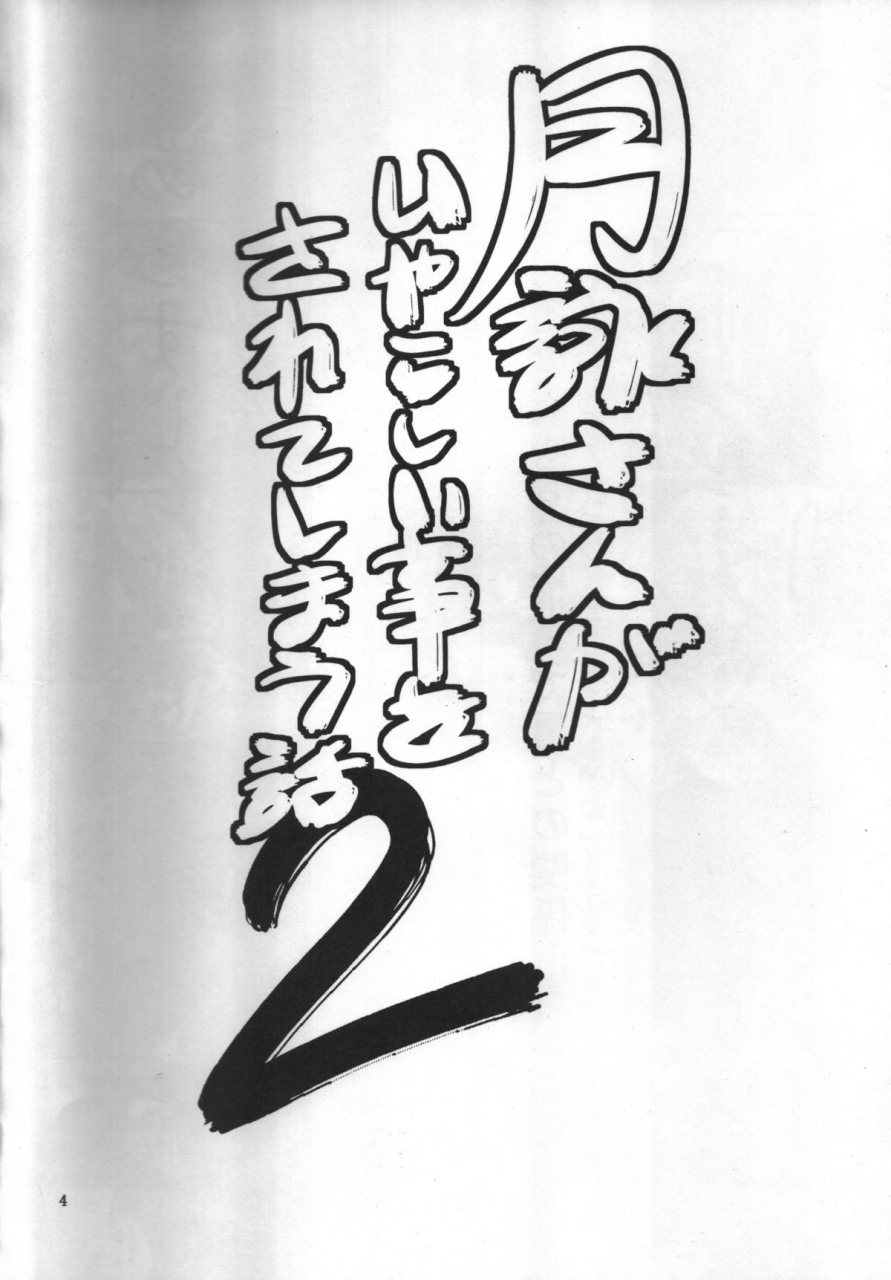 月詠さんが
いやこしい事を
されてしまう話
2
4